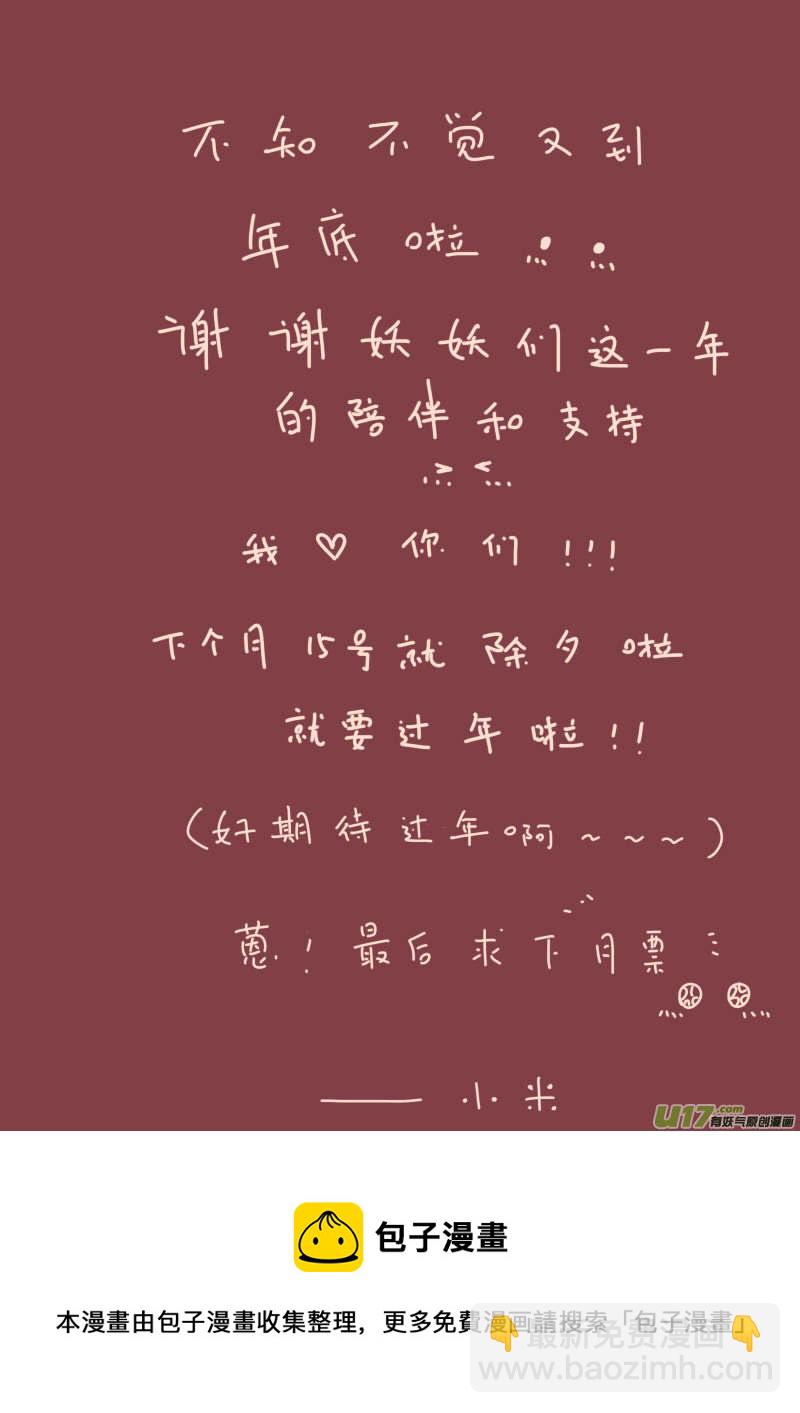 不知不觉又到
年底啦
谢谢妖妖们这一年
的陪伴和支持
我♡你们!!!
下个月15号就除夕啦
就要过年啦!!
(好期待过年啊~~~)
蒽!最后求下月票
——小米
U17.com
有妖气原创漫画
包子漫畫
本漫畫由包子漫畫收集整理,更多免費漫画請搜索「包子漫畫」
👇最新免费漫画👇
www.baozimh.com